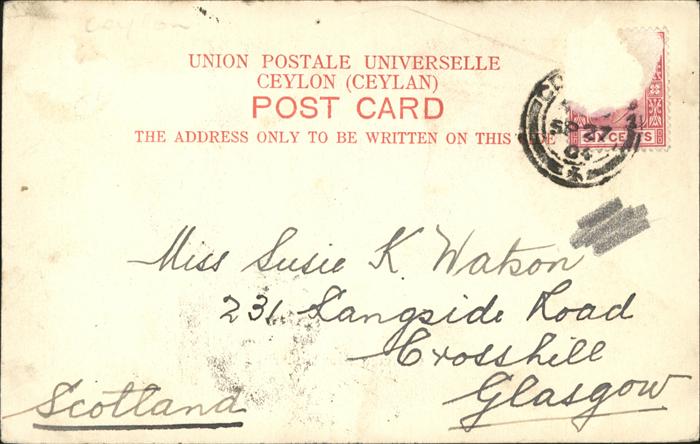 Ceylon
UNION POSTALE UNIVERSELLE
CEYLON (CEYLAN)
POST CARD
THE ADDRESS ONLY TO BE WRITTEN ON THIS
SIX CENTS
SP 27
04
Miss Susie K. Watson
231 Langside Road
Crosshill
Glasgow
Scotland